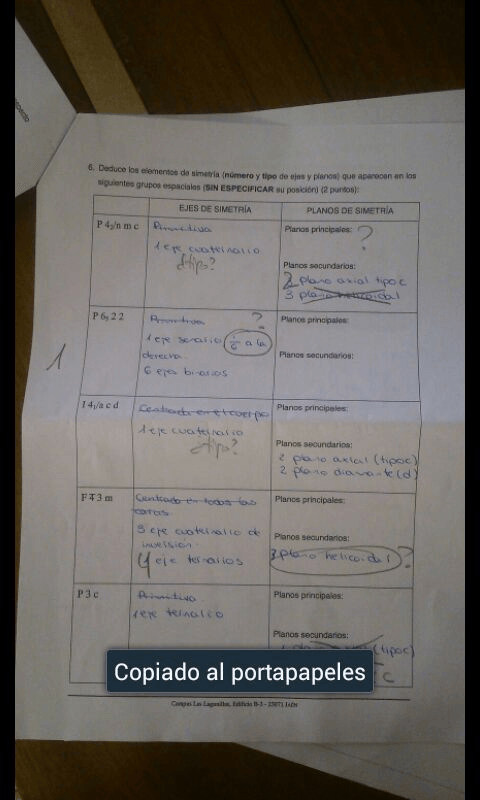 6. Deduce los elementos de simetría (número y tipo de ejes y planos) que aparecen en los
siguientes grupos espaciales (SIN ESPECIFICAR su posición) (2 puntos):
EJES DE SIMETRÍA
PLANOS DE SIMETRÍA
P 4₂/n m c
Primitiva
1 eje cuaternario
¿tipo?
Planos principales:
?
Planos secundarios:
2 plano axial tipo c
3 plano helicoidal
P 6₅ 2 2
Primitiva
?
1 eje senario 1/6 a la
derecha.
6 ejes binarios
Planos principales:
Planos secundarios:
1
I 4₁/a c d
Centrada en el cuerpo
1 eje cuaternario
¿tipo?
Planos principales:
Planos secundarios:
2 plano axial (tipo c)
2 plano diamante (d)
F 4̄ 3 m
Centrado en todas las
caras.
3 eje cuaternario de
inversión.
4 eje ternarios
Planos principales:
Planos secundarios:
3 plano helicoidal ?
P 3 c
Primitiva.
1 eje ternario
Planos principales:
Planos secundarios:
(tipo c)
c
Copiado al portapapeles
Campus Las Lagunillas, Edificio B-3 - 23071 JAÉN